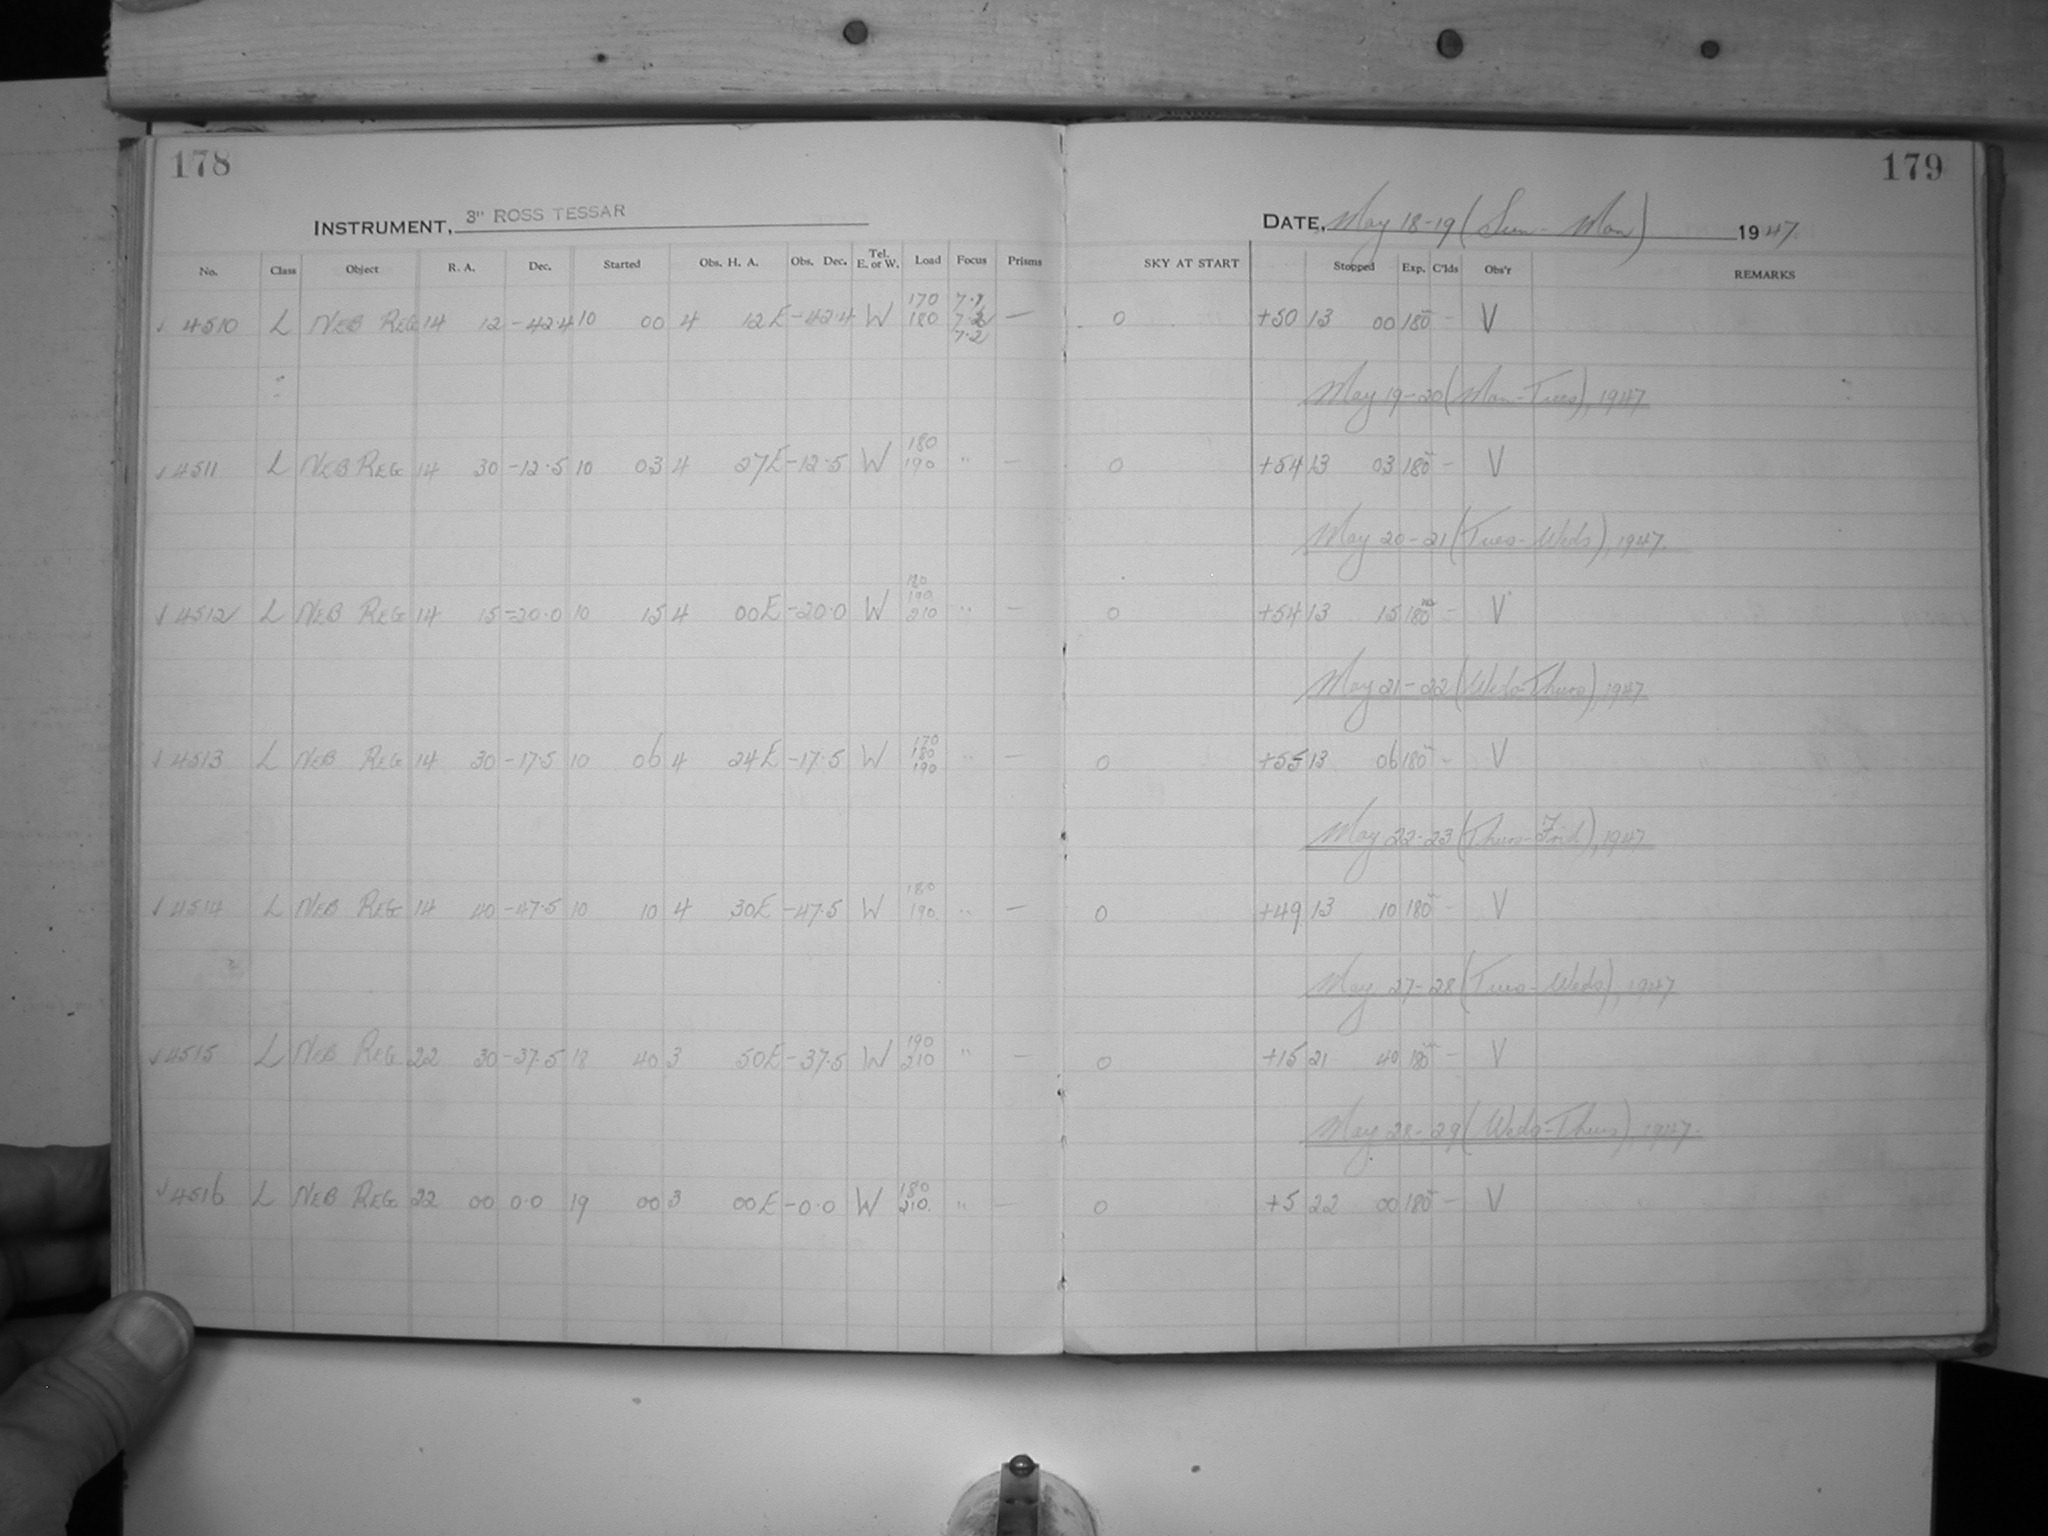 178
179
INSTRUMENT, 3" ROSS TESSAR
DATE, May 18-19 (Sun - Mon) 1947
No. Class Object R. A. Dec. Started Obs. H. A. Obs. Dec. Tel. E. or W. Load Focus Prisms SKY AT START Stopped Exp. C'lds Obs'r REMARKS
✓ 4510 L NEB REG 14 12 -42.4 10 00 4 12E -42.4 W 170 180 7.2 — 0 +50 13 00 180 - V
May 19-20 (Mon-Tues), 1947
✓ 4511 L NEB REG 14 30 -12.5 10 03 4 27E -12.5 W 180 190 " — 0 +54 13 03 180 - V
May 20-21 (Tues-Weds), 1947.
✓ 4512 L NEB REG 14 15 -20.0 10 15 4 00E -20.0 W 180 190 210 " — 0 +54 13 15 180 - V
May 21-22 (Weds-Thurs), 1947
✓ 4513 L NEB REG 14 30 -17.5 10 06 4 24E -17.5 W 170 180 190 " — 0 +55 13 06 180 - V
May 22-23 (Thurs-Frid), 1947
✓ 4514 L NEB REG 14 40 -47.5 10 10 4 30E -47.5 W 180 190 " — 0 +49 13 10 180 - V
May 27-28 (Tues-Weds), 1947
✓ 4515 L NEB REG 22 30 -37.5 18 40 3 50E -37.5 W 190 210 " — 0 +15 21 40 180 - V
May 28-29 (Weds-Thurs), 1947.
✓ 4516 L NEB REG 22 00 0.0 19 00 3 00E -0.0 W 180 210 " — 0 +5 22 00 180 - V